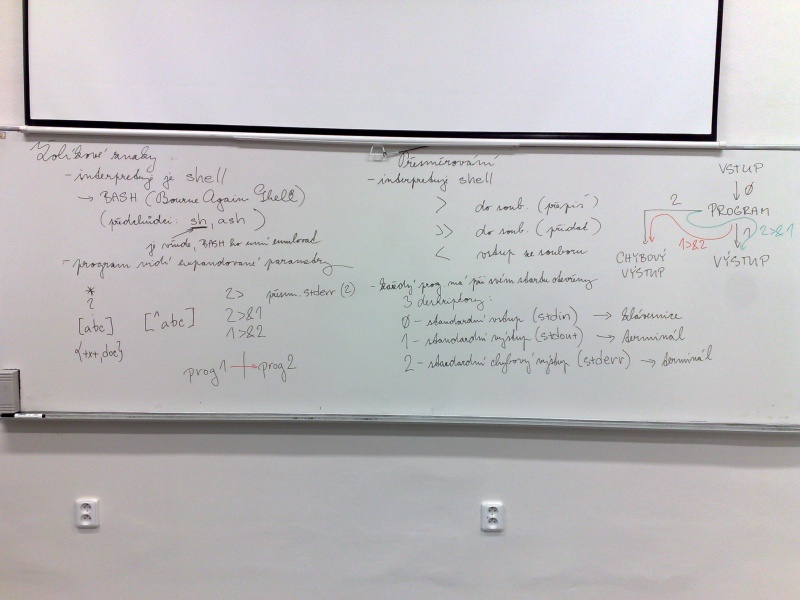 Žolíkové znaky
- interpretuje je shell
→ BASH (Bourne Again Shell)
(předchůdci: sh, ash)
je všude, BASH ho umí emulovat
- program vidí expandované parametry
*
?
[abc] [^abc]
{txt,doc}
2> přesm. stderr (2)
2>&1
1>&2
prog1 | prog2
Přesměrování
- interpretuje shell
> do soub. (přepiš)
>> do soub. (přidat)
< vstup ze souboru
- každý prog. má při svém startu otevřeny
3 deskriptory:
0 - standardní vstup (stdin) → klávesnice
1 - standardní výstup (stdout) → terminál
2 - standardní chybový výstup (stderr) → terminál
VSTUP
0
PROGRAM
2
1>&2
1
2>&1
CHYBOVÝ
VÝSTUP
VÝSTUP